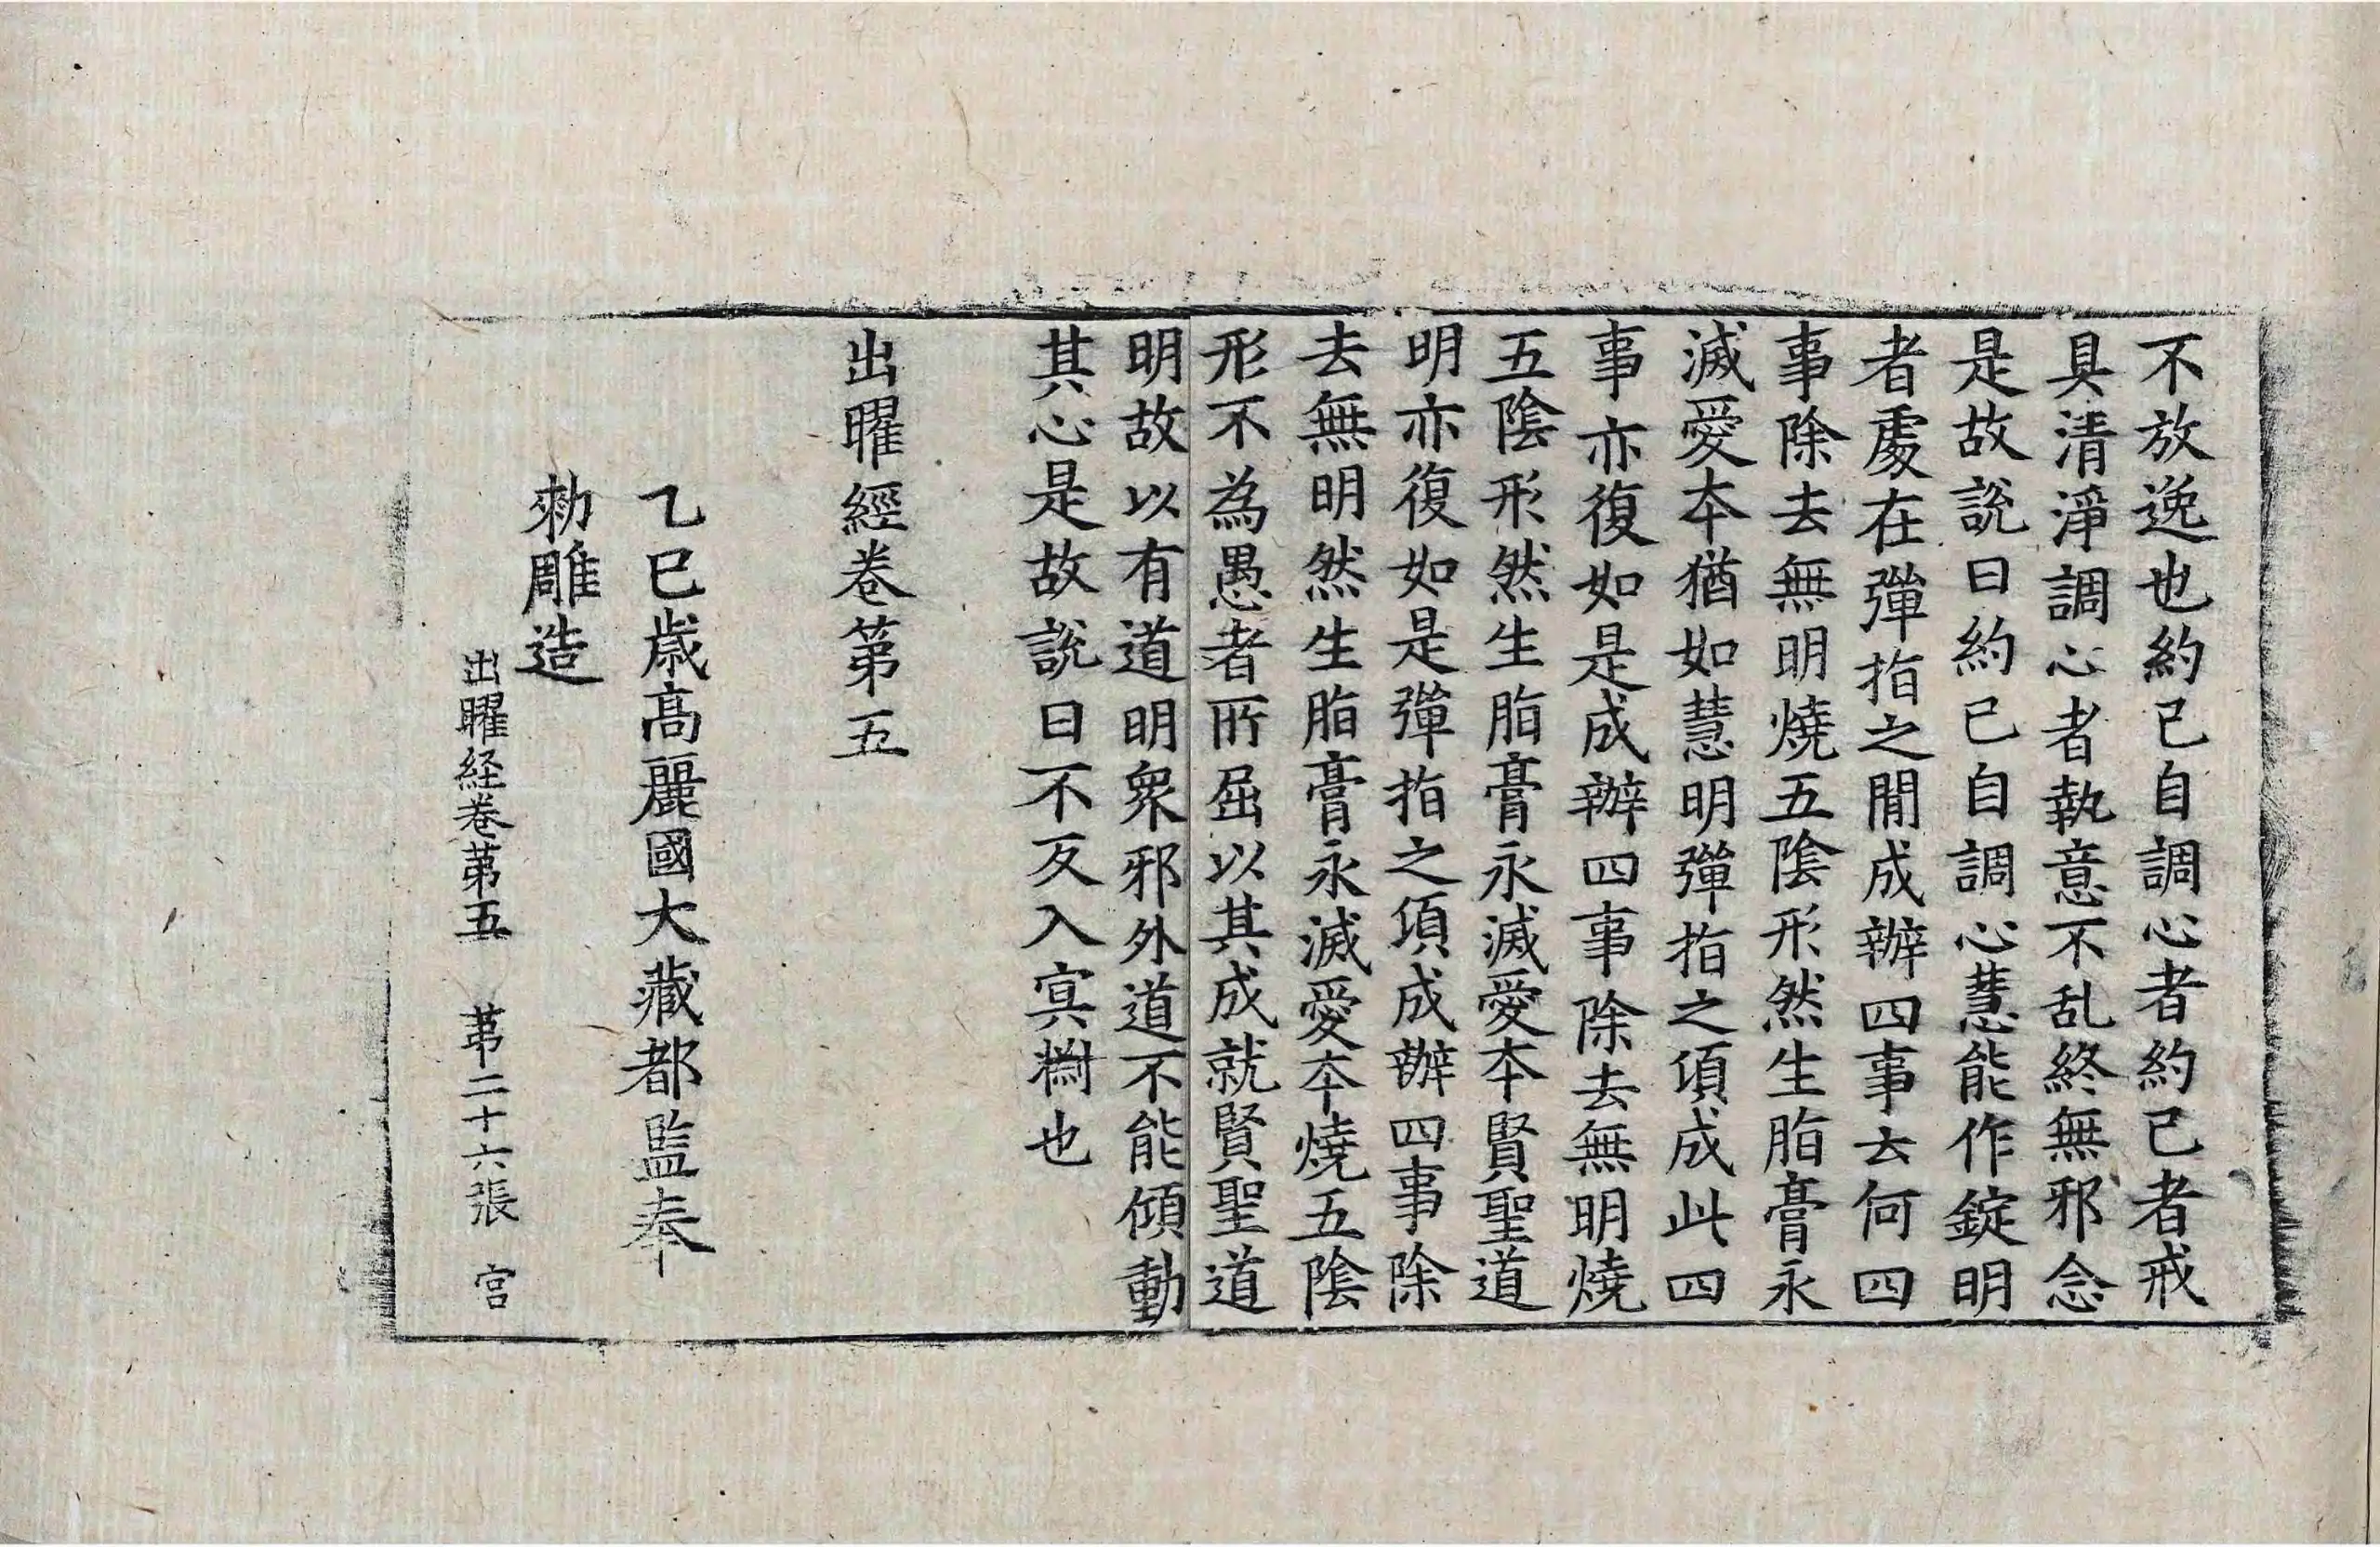 不放逸也約己自調心者約己者戒
具清淨調心者執意不乱終無邪念
是故說曰約己自調心慧能作錠明
者處在彈指之閒成辦四事云何四
事除去無明燒五陰形然生脂膏永
滅愛本猶如慧明彈指之頃成此四
事亦復如是成辦四事除去無明燒
五陰形然生脂膏永滅愛本賢聖道
明亦復如是彈指之頃成辦四事除
去無明然生脂膏永滅愛本燒五陰
形不為愚者所屈以其成就賢聖道
明故以有道明衆邪外道不能傾動
其心是故說曰不反入㝠㴑也
出曜經卷第五
乙巳歲高麗國大藏都監奉
勑雕造
出曜経卷第五　第二十六張　宫